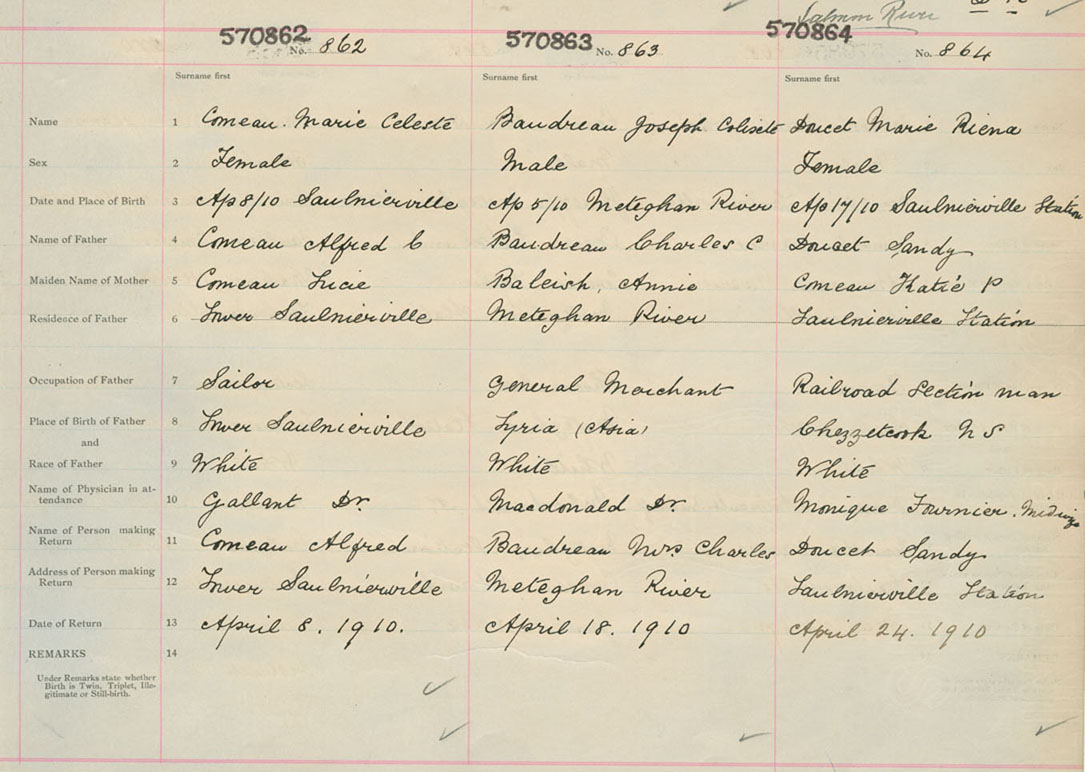 Salmon River
570862 No. 862 570863 No. 863 570864 No. 864
Surname first Surname first Surname first
Name 1 Comeau. Marie Celeste Baudreau Joseph Doucet Marie Riena
Sex 2 Female Male Female
Date and Place of Birth 3 Ap 8/10 Saulnierville Ap 5/10 Meteghan River Ap 17/10 Saulnierville Station
Name of Father 4 Comeau Alfred C Baudreau Charles C Doucet Sandy
Maiden Name of Mother 5 Comeau Lucie Baleish, Annie Comeau Katie P
Residence of Father 6 Lower Saulnierville Meteghan River Saulnierville Station
Occupation of Father 7 Sailor General Merchant Railroad Section man
Place of Birth of Father 8 Lower Saulnierville Syria (Asia) Chezzetcook N S
and
Race of Father 9 White White White
Name of Physician in at-
tendance 10 Gallant Dr. Macdonald Dr. Monique Fournier. Midwife
Name of Person making
Return 11 Comeau Alfred Baudreau Mrs Charles Doucet Sandy
Address of Person making
Return 12 Lower Saulnierville Meteghan River Saulnierville Station
Date of Return 13 April 8. 1910. April 18. 1910 April 24. 1910
REMARKS 14
Under Remarks state whether
Birth is Twin, Triplet, Ille-
gitimate or Still-birth.